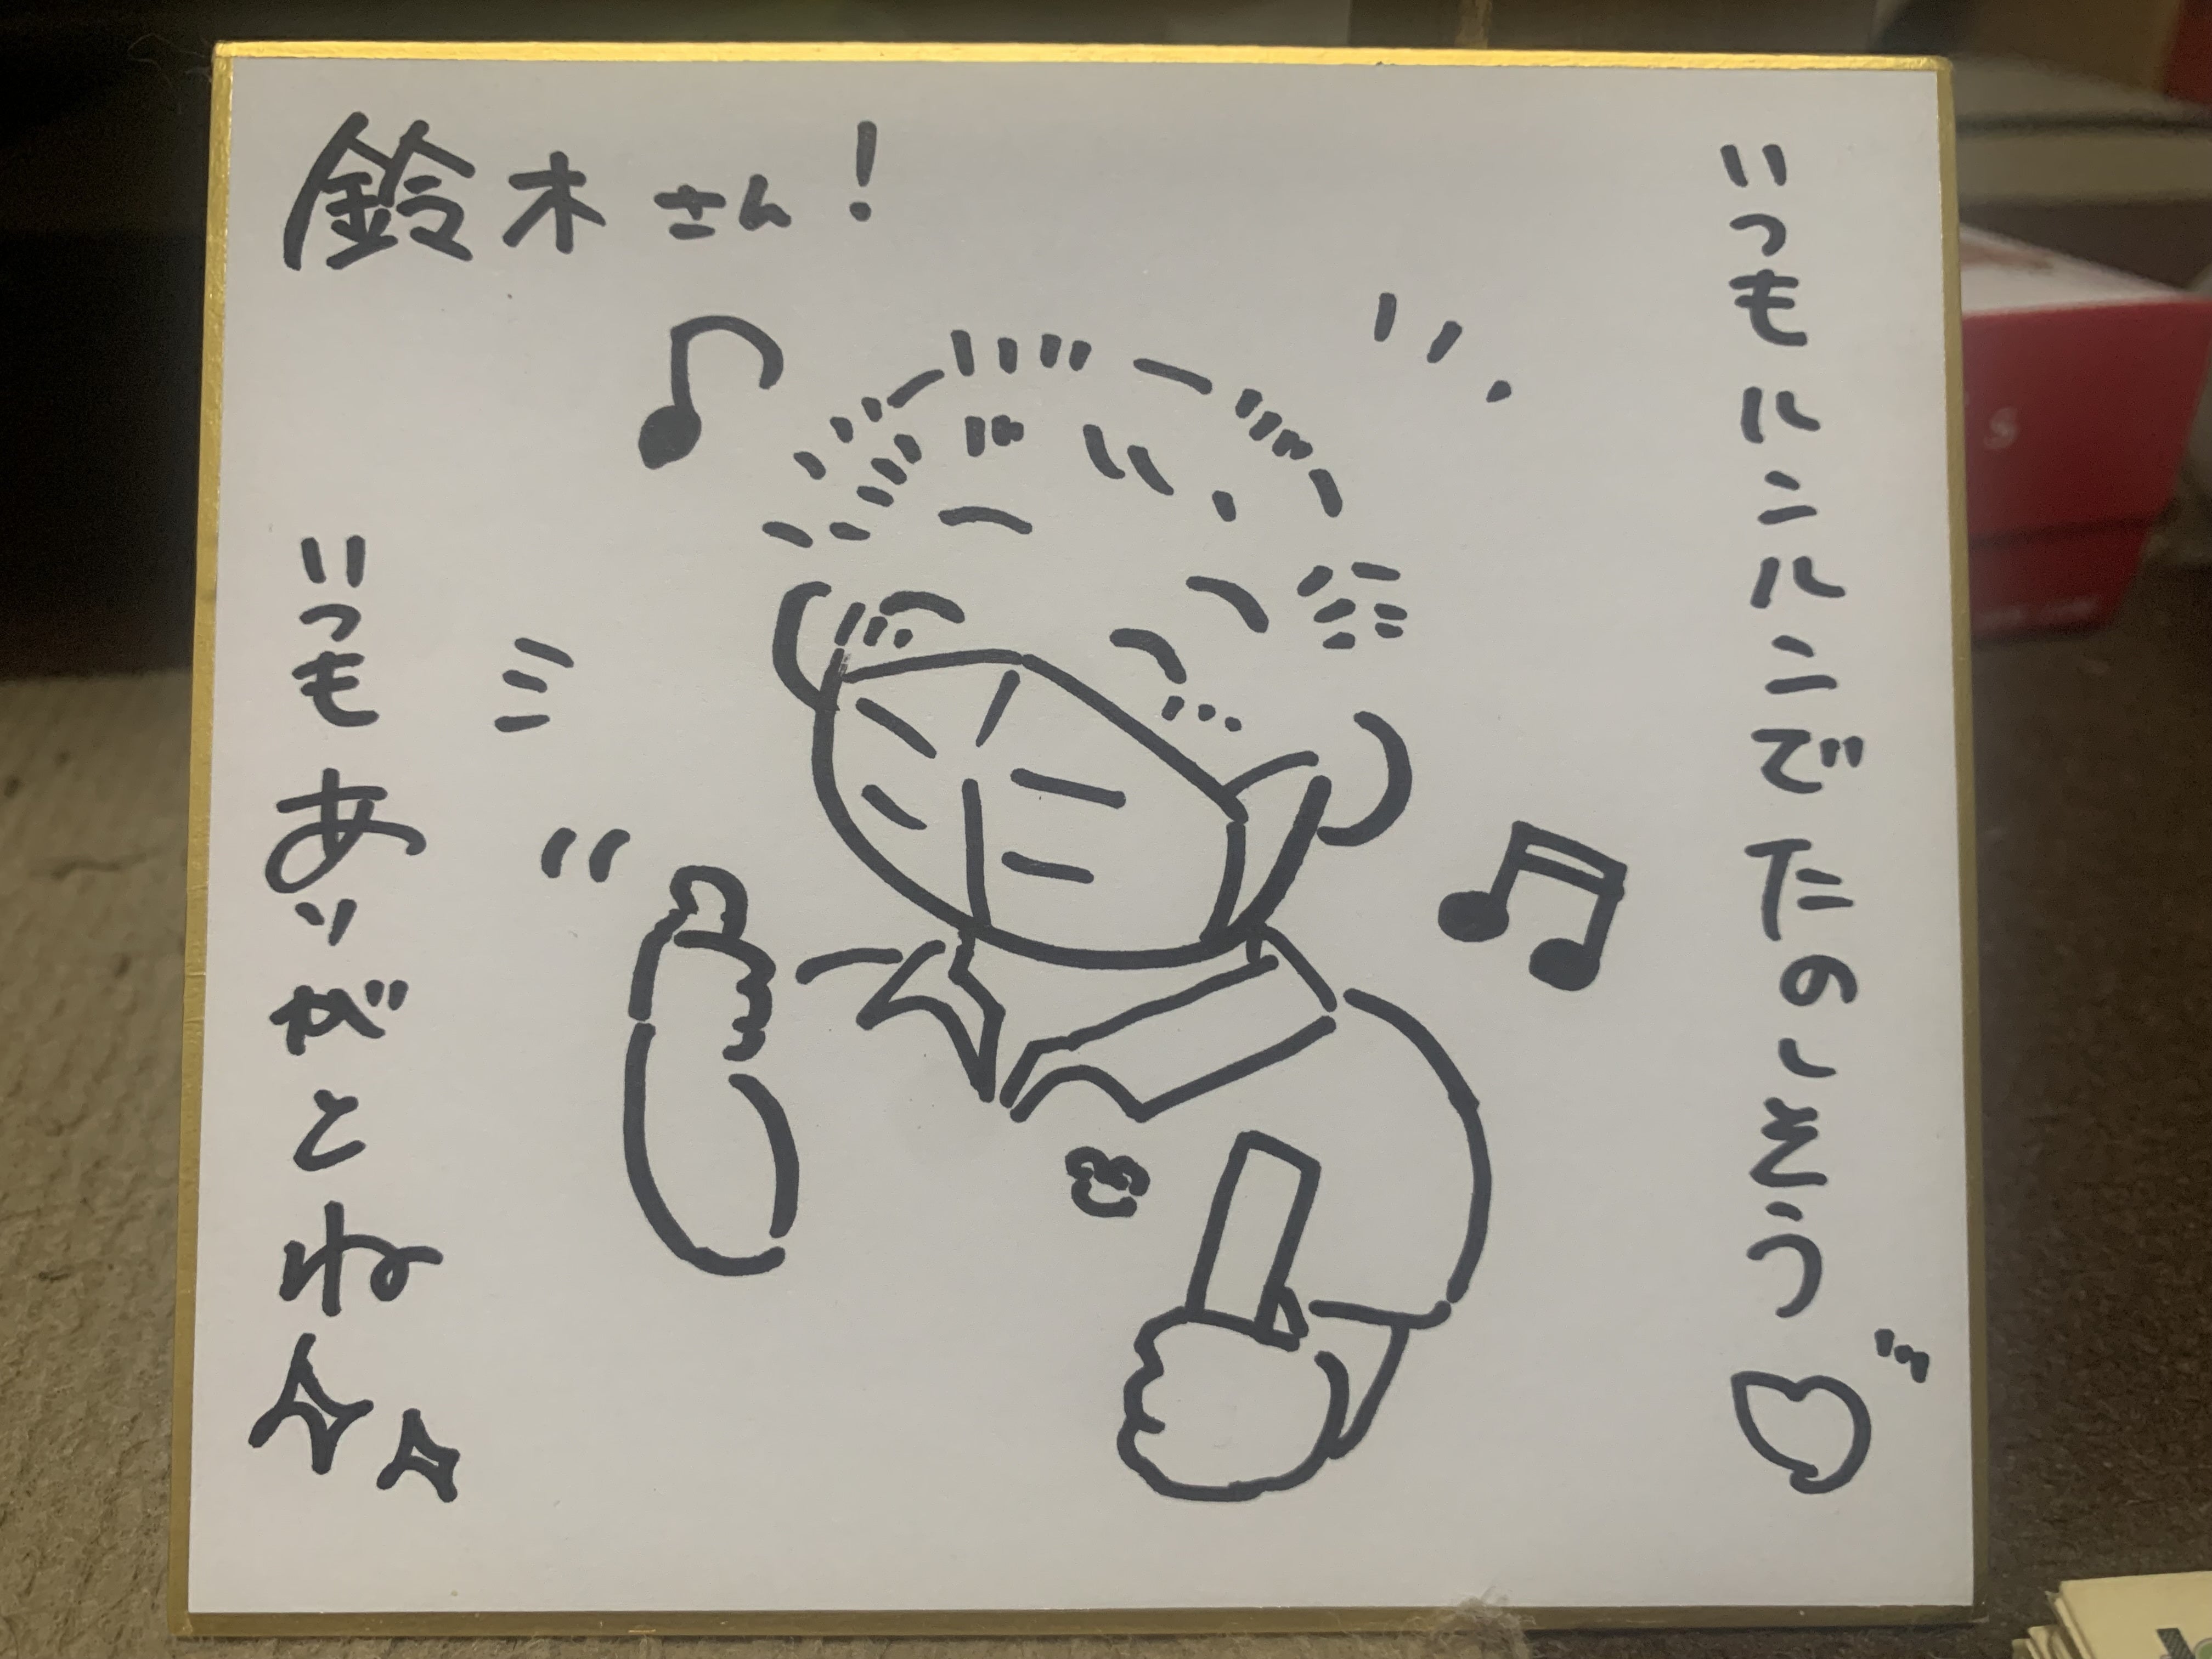 鈴木さん!
いつもルンルンでたのしそう♡
いつもありがとね